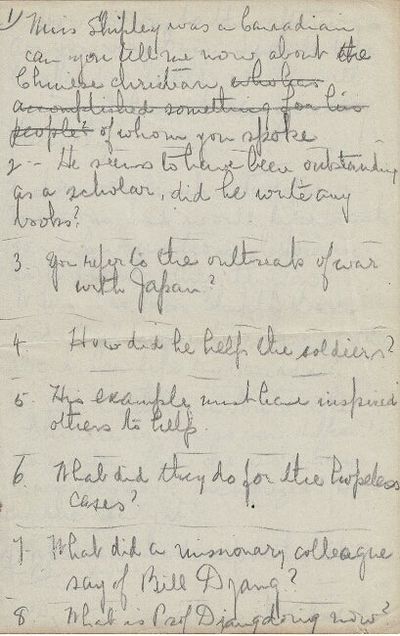 1) Miss Shipley was a Canadian
can you tell me now about the
Chinese christian, who has
accomplished something for his
people? of whom you spoke
2 -- He seems to have been outstanding
as a scholar, did he write any
books?
3. You refer to the outbreak of war
with Japan?
4. How did he help the soldiers?
5. His example must have inspired
others to help.
6. What did they do for the hopeless
cases?
7. What did a missionary colleague
say of Bill Djang?
8 What is Prof Djang doing now?